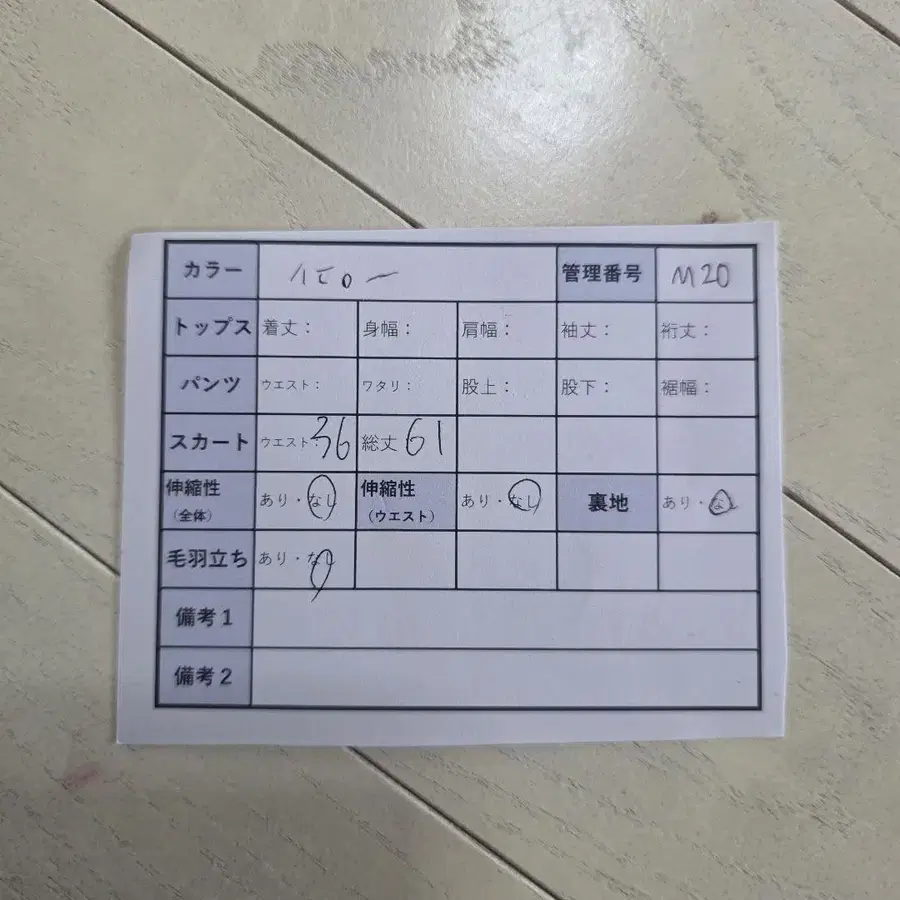 カラー イエロー 管理番号 M20
トップス 着丈: 身幅: 肩幅: 袖丈: 裄丈:
パンツ ウエスト: ワタリ: 股上: 股下: 裾幅:
スカート ウエスト:36 総丈 61
伸縮性(全体) あり・なし 伸縮性(ウエスト) あり・なし 裏地 あり・なし
毛羽立ち あり・なし
備考1
備考2